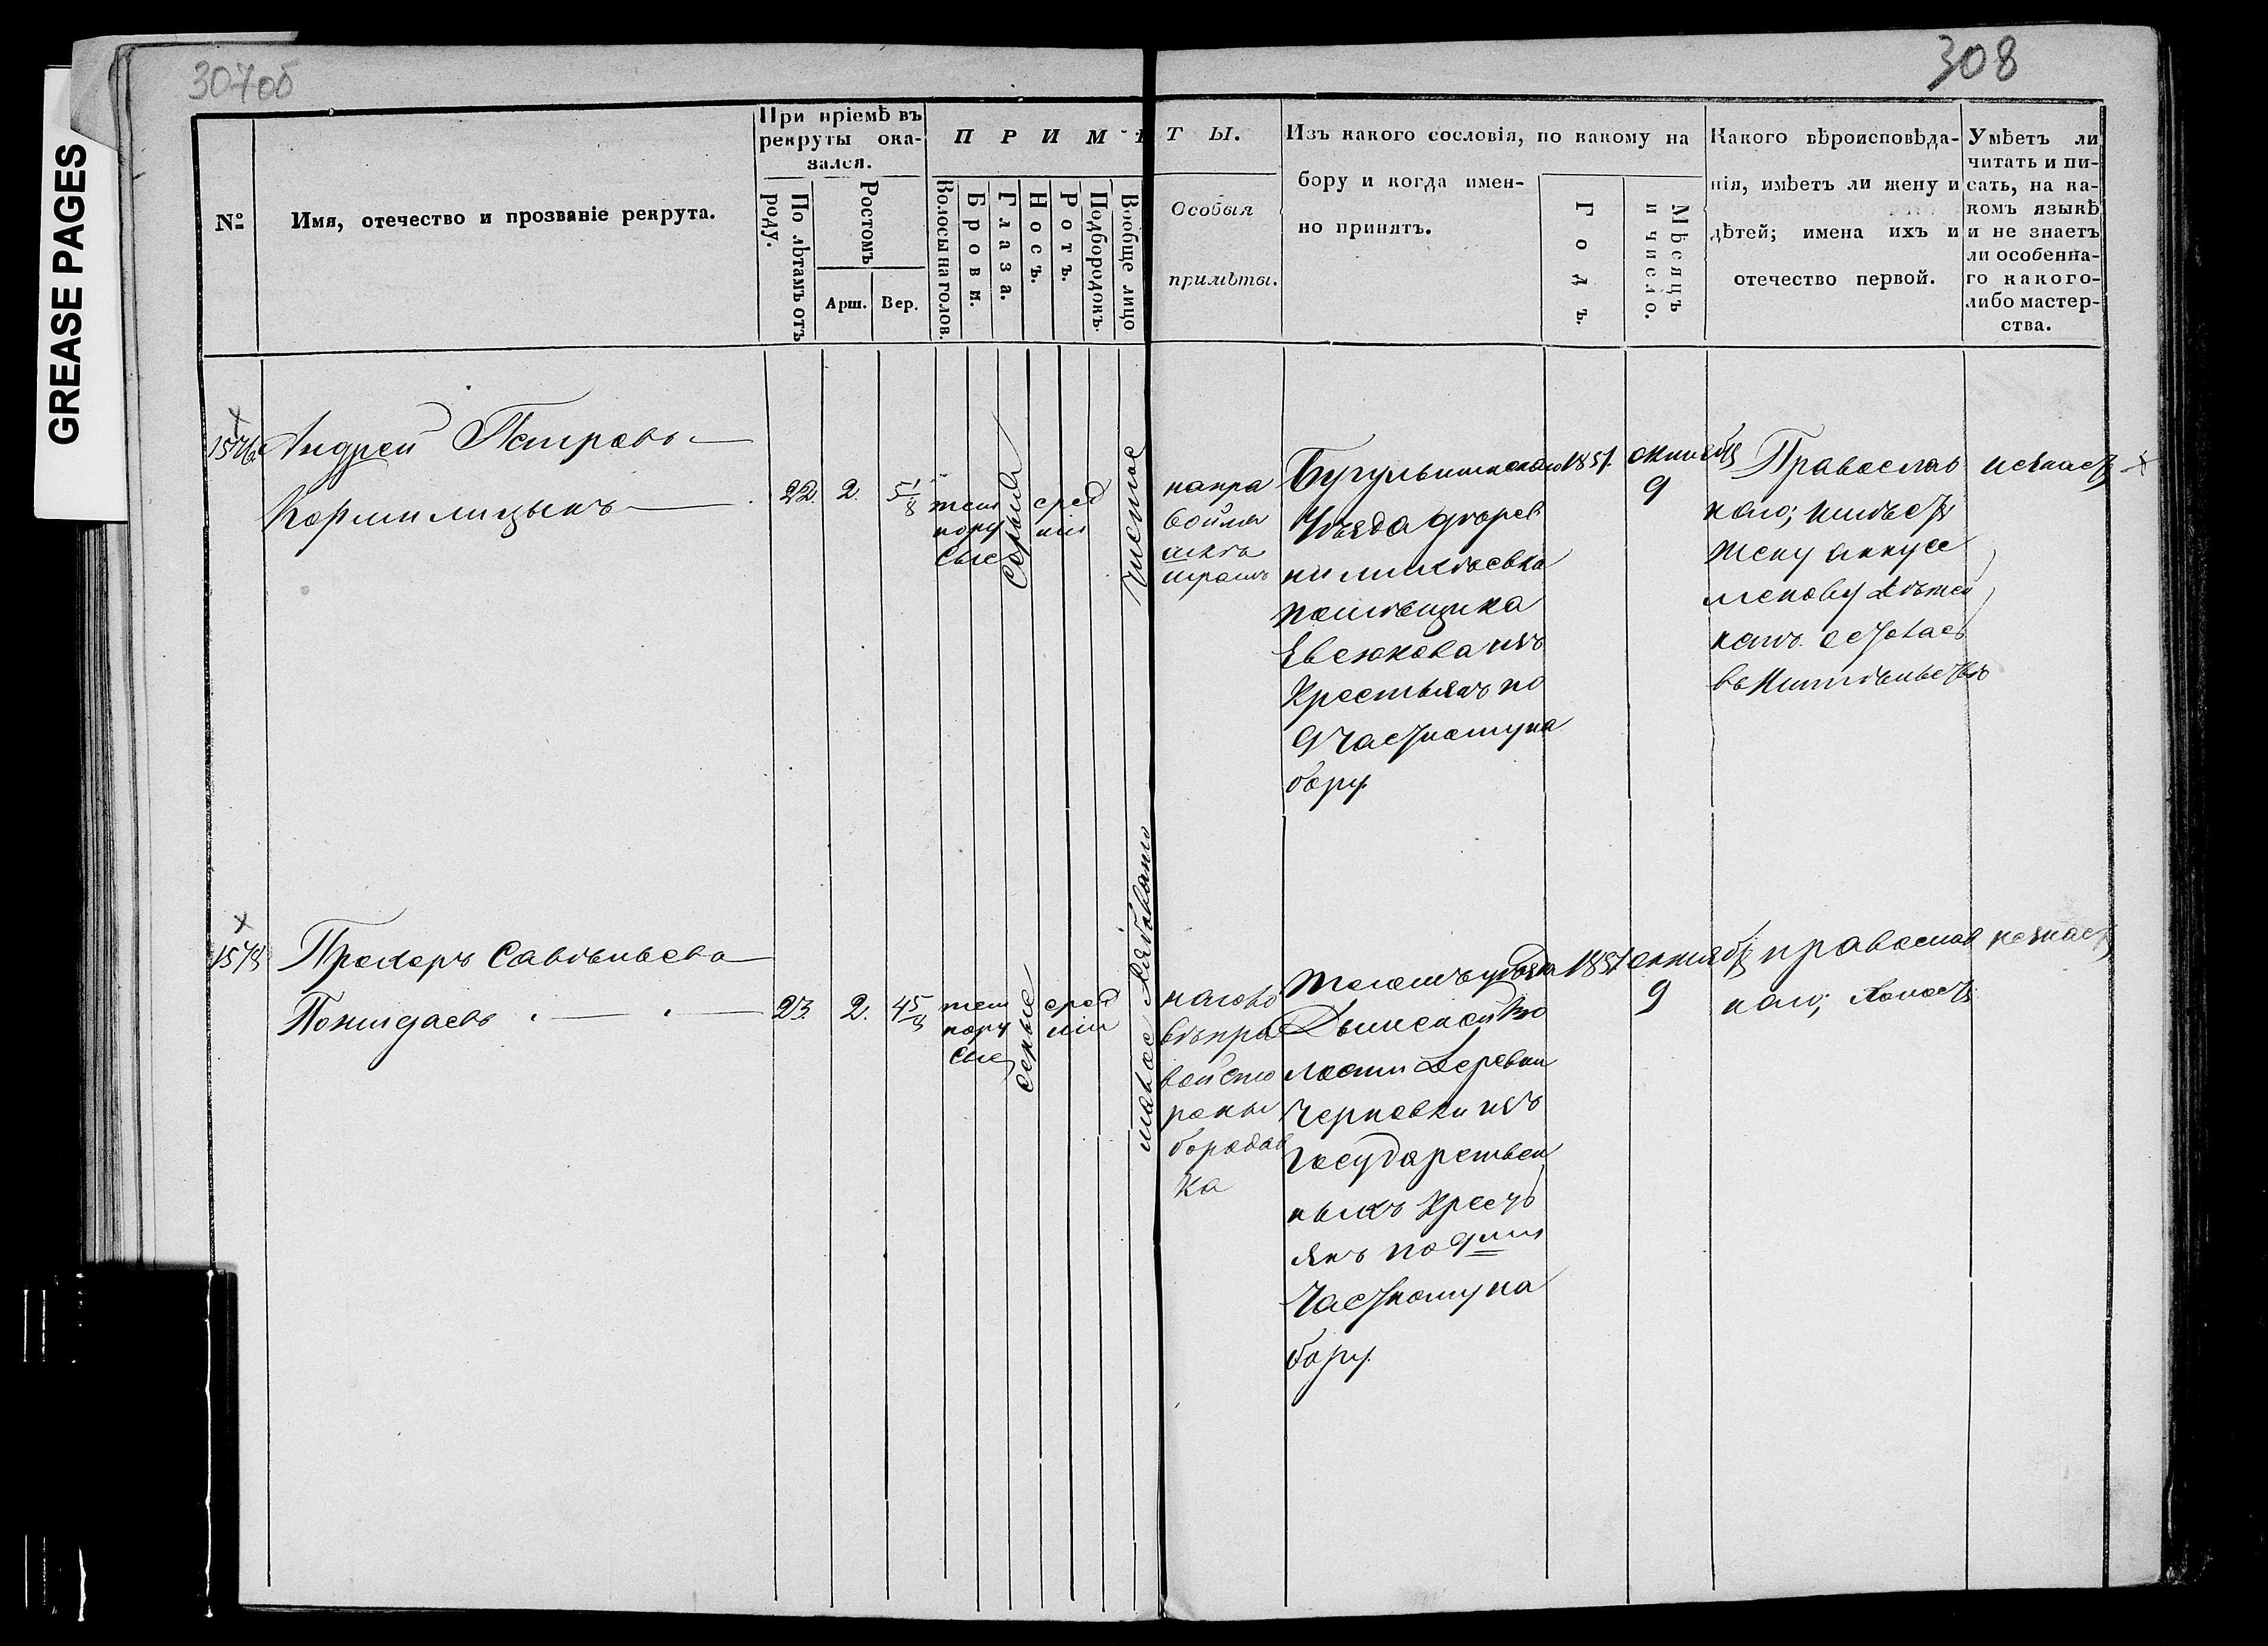 307об
308
GREASE PAGES
№
Имя, отечество и прозваніе рекрута.
При пріемѣ въ
рекруты ока-
зался.
По лѣтамъ отъ
роду.
Ростомъ
Арш.
Вер.
ПРИМѢТЫ.
Волосы на голов.
Брови.
Глаза.
Носъ.
Ротъ.
Подбородокъ.
Вообще лицо
Особыя
примѣты.
Изъ какого сословія, по какому на
бору и когда имен-
но принятъ.
Годъ.
Мѣсяцъ
и число.
Какого вѣроисповѣда-
нія, имѣетъ ли жену и
дѣтей; имена ихъ и
отечество первой.
Умѣетъ ли
читать и пи-
сать, на ка-
комъ языкѣ
и не знаетъ
ли особенна-
го какого-
либо мастер-
ства.
Андрей Петровъ
Кормилицынъ
22. 2. 5 1/8
тем
нору
сые
серыя
сред
ніи
чистое
на пра
вой
шрамъ
Бугульминскаго
Уѣзда дерев
ни
помѣщика
изъ
Крестьянъ по
9 частному на
бору.
1851.
октября
9
Православ
наго; имѣетъ
жену
дѣтей
незнаетъ
Прохоръ Савѣльева
Пожидаевъ
23. 2.
тем
нору
сые
серые
сред
ніи
рябовато
на лѣ
пра
вой сто
роны
бородав
ка
тогожъ уѣзда
Дымской Во
лости деревни
Черновки изъ
Государствен
ныхъ Крест
янъ по 9му
Частному на
бору.
1851
октября
9
православ
наго; холостъ
незнаетъ